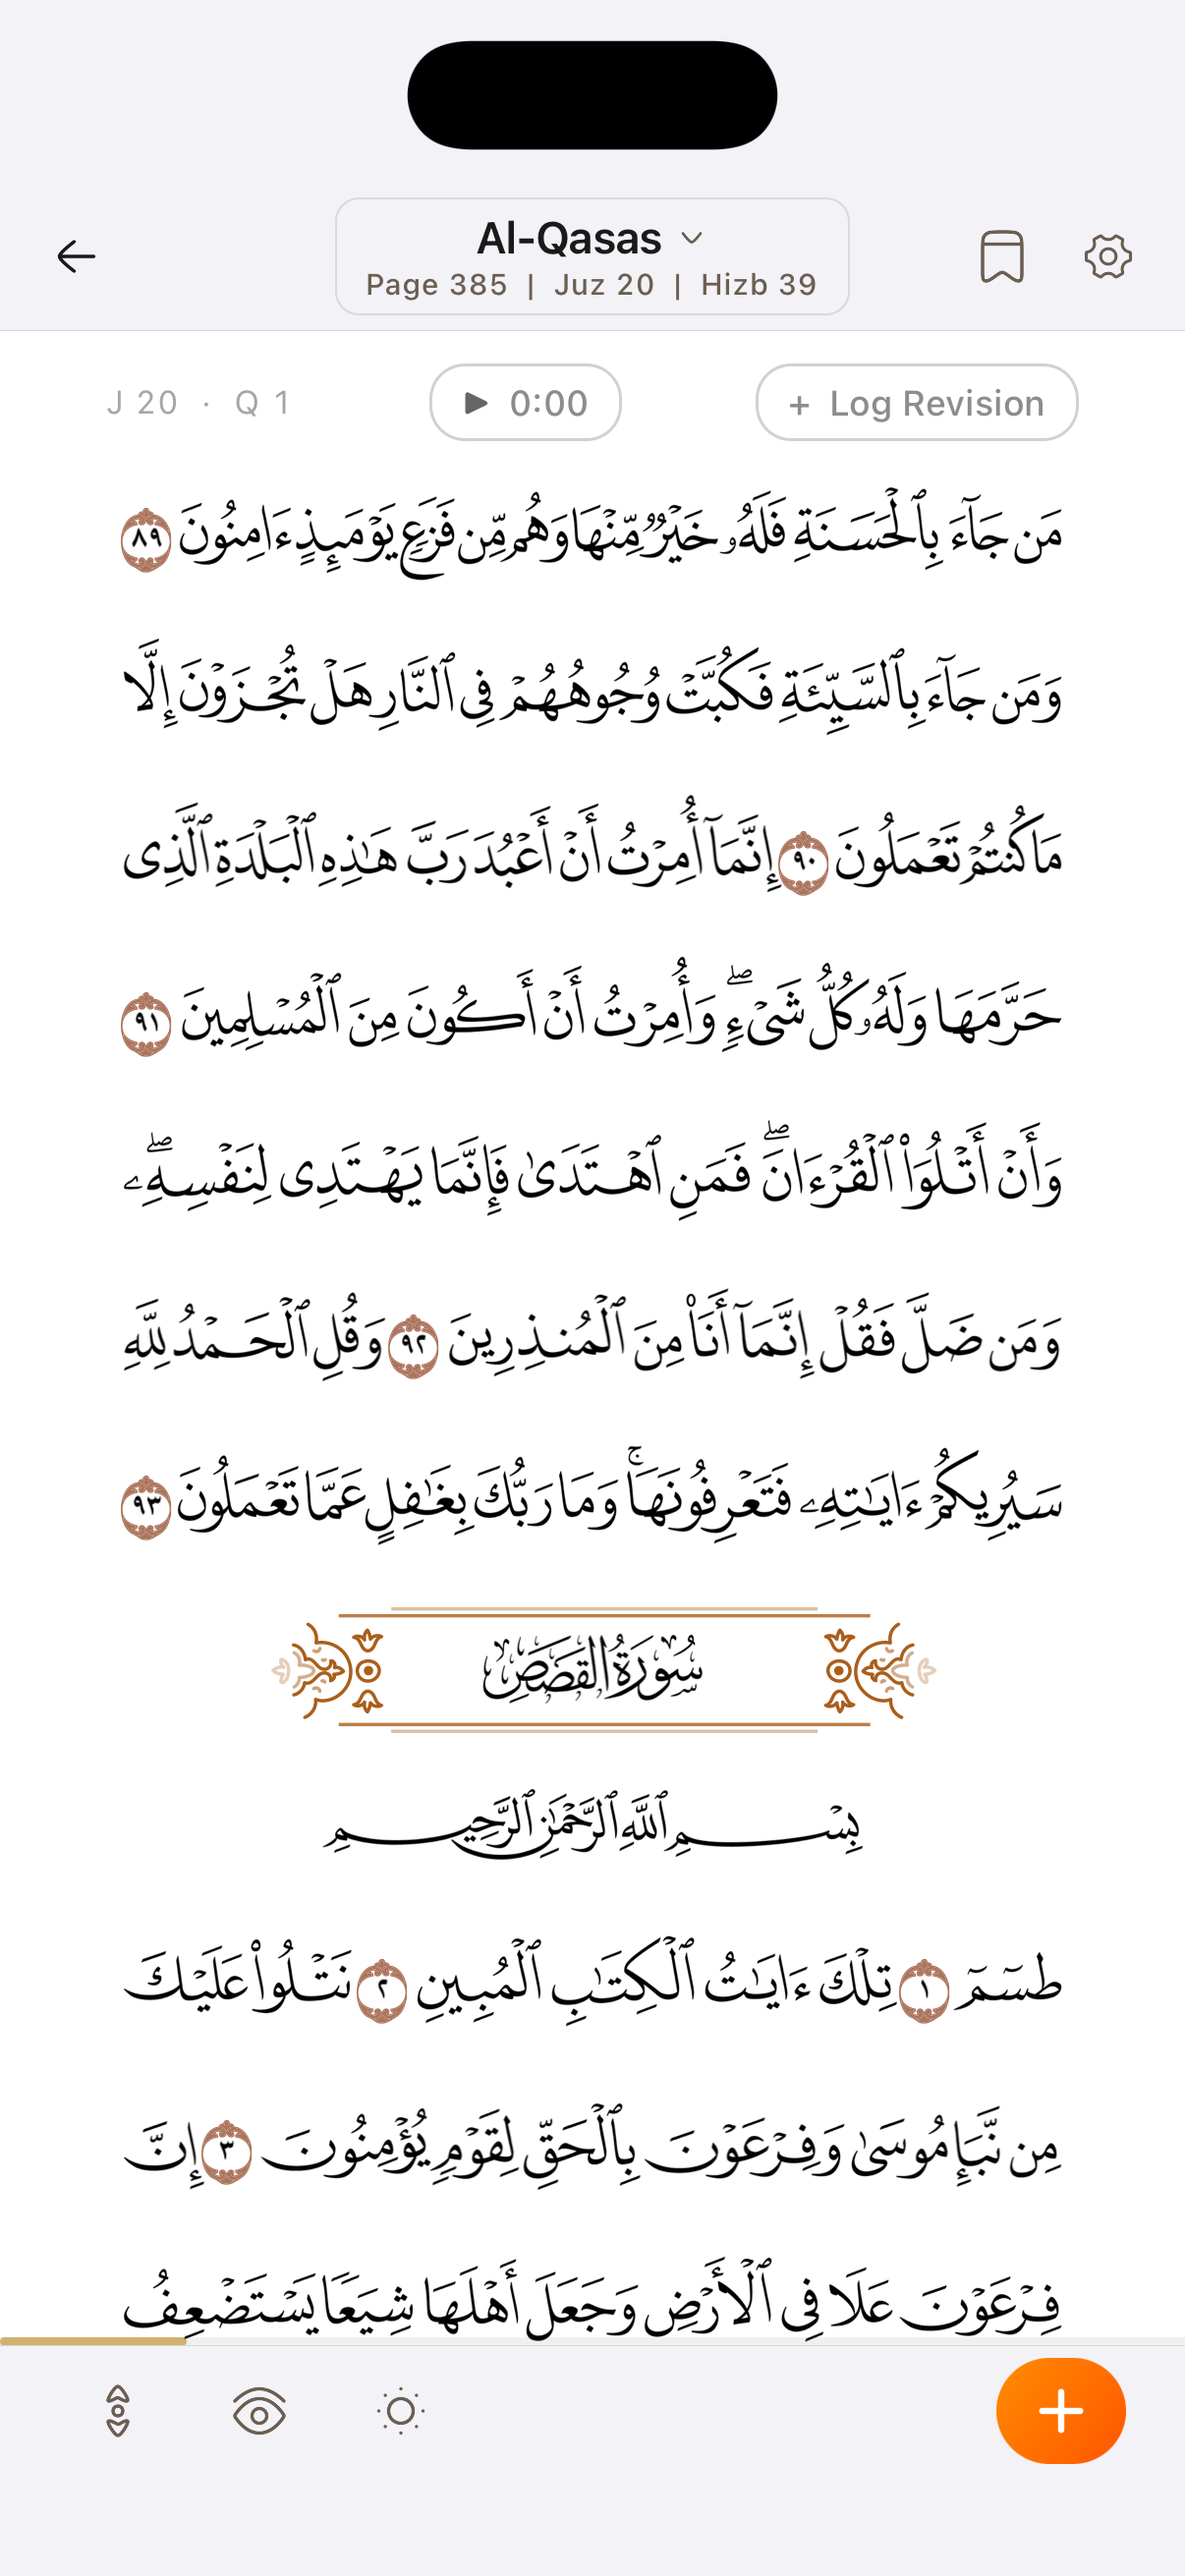 Al-Qasas
Page 385 | Juz 20 | Hizb 39
J 20 · Q 1
0:00
+ Log Revision
مَن جَآءَ بِٱلْحَسَنَةِ فَلَهُۥ خَيْرٌ مِّنْهَا وَهُم مِّن فَزَعٍ يَوْمَئِذٍ ءَامِنُونَ ٨٩
وَمَن جَآءَ بِٱلسَّيِّئَةِ فَكُبَّتْ وُجُوهُهُمْ فِى ٱلنَّارِ هَلْ تُجْزَوْنَ إِلَّا
مَا كُنتُمْ تَعْمَلُونَ ٩٠ إِنَّمَآ أُمِرْتُ أَنْ أَعْبُدَ رَبَّ هَـٰذِهِ ٱلْبَلْدَةِ ٱلَّذِى
حَرَّمَهَا وَلَهُۥ كُلُّ شَىْءٍ ۖ وَأُمِرْتُ أَنْ أَكُونَ مِنَ ٱلْمُسْلِمِينَ ٩١
وَأَنْ أَتْلُوَا۟ ٱلْقُرْءَانَ ۖ فَمَنِ ٱهْتَدَىٰ فَإِنَّمَا يَهْتَدِى لِنَفْسِهِۦ ۖ
وَمَن ضَلَّ فَقُلْ إِنَّمَآ أَنَا۠ مِنَ ٱلْمُنذِرِينَ ٩٢ وَقُلِ ٱلْحَمْدُ لِلَّهِ
سَيُرِيكُمْ ءَايَـٰتِهِۦ فَتَعْرِفُونَهَا ۚ وَمَا رَبُّكَ بِغَـٰفِلٍ عَمَّا تَعْمَلُونَ ٩٣
سُورَةُ القَصَصِ
بِسْمِ ٱللَّهِ ٱلرَّحْمَـٰنِ ٱلرَّحِيمِ
طسٓمٓ ١ تِلْكَ ءَايَـٰتُ ٱلْكِتَـٰبِ ٱلْمُبِينِ ٢ نَتْلُوا۟ عَلَيْكَ
مِن نَّبَإِ مُوسَىٰ وَفِرْعَوْنَ بِٱلْحَقِّ لِقَوْمٍ يُؤْمِنُونَ ٣ إِنَّ
فِرْعَوْنَ عَلَا فِى ٱلْأَرْضِ وَجَعَلَ أَهْلَهَا شِيَعًا يَسْتَضْعِفُ